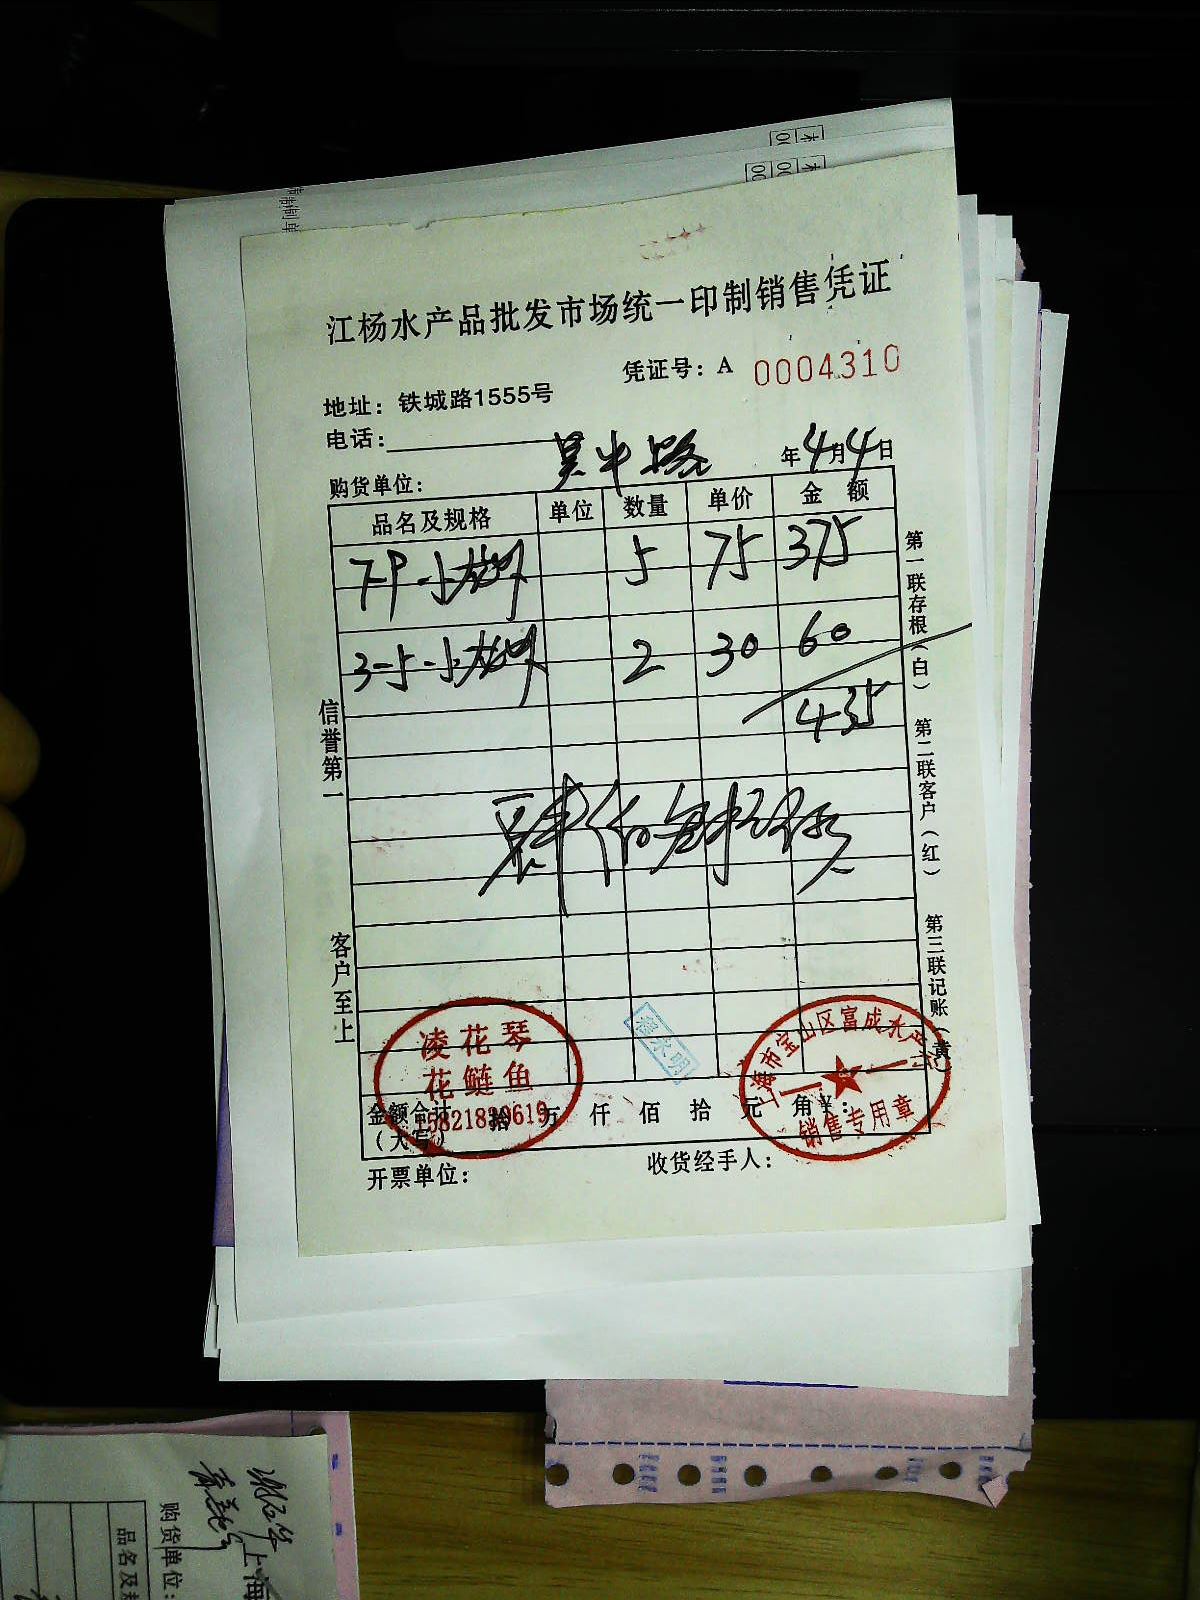 江杨水产品批发市场统一印制销售凭证
凭证号：A 0004310
地址：铁城路1555号
电话：
购货单位： 吴中路 年4月4日
品名及规格 单位 数量 单价 金额
7-9-小龙虾 5 75 375
3-5-小龙虾 2 30 60
435
肆佰叁拾伍元
信誉第一
客户至上
第一联存根（白）
第二联客户（红）
第三联记账（黄）
凌花琴
花鲢鱼
程永明
上海市宝山区富成水产
销售专用章
金额合计
（大写）
拾 万 仟 佰 拾 元 角 ¥：
开票单位：
收货经手人：
购货单位：
品名及
上海